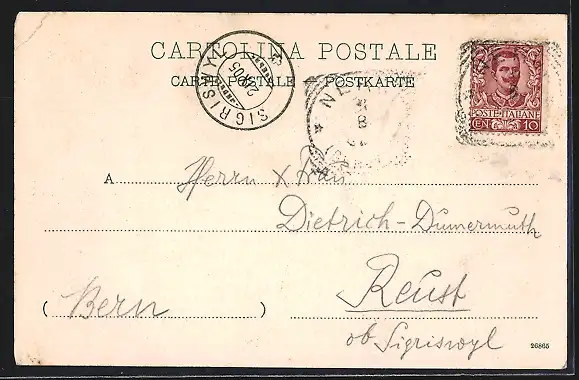 CARTOLINA POSTALE
CARTE POSTALE — POSTKARTE
SIGRISWYL
POSTE ITALIANE
CEN 10
A Herrn & Frau
Dietrich-Dümermuth
Reust
(Bern)
ob Sigriswyl
26865